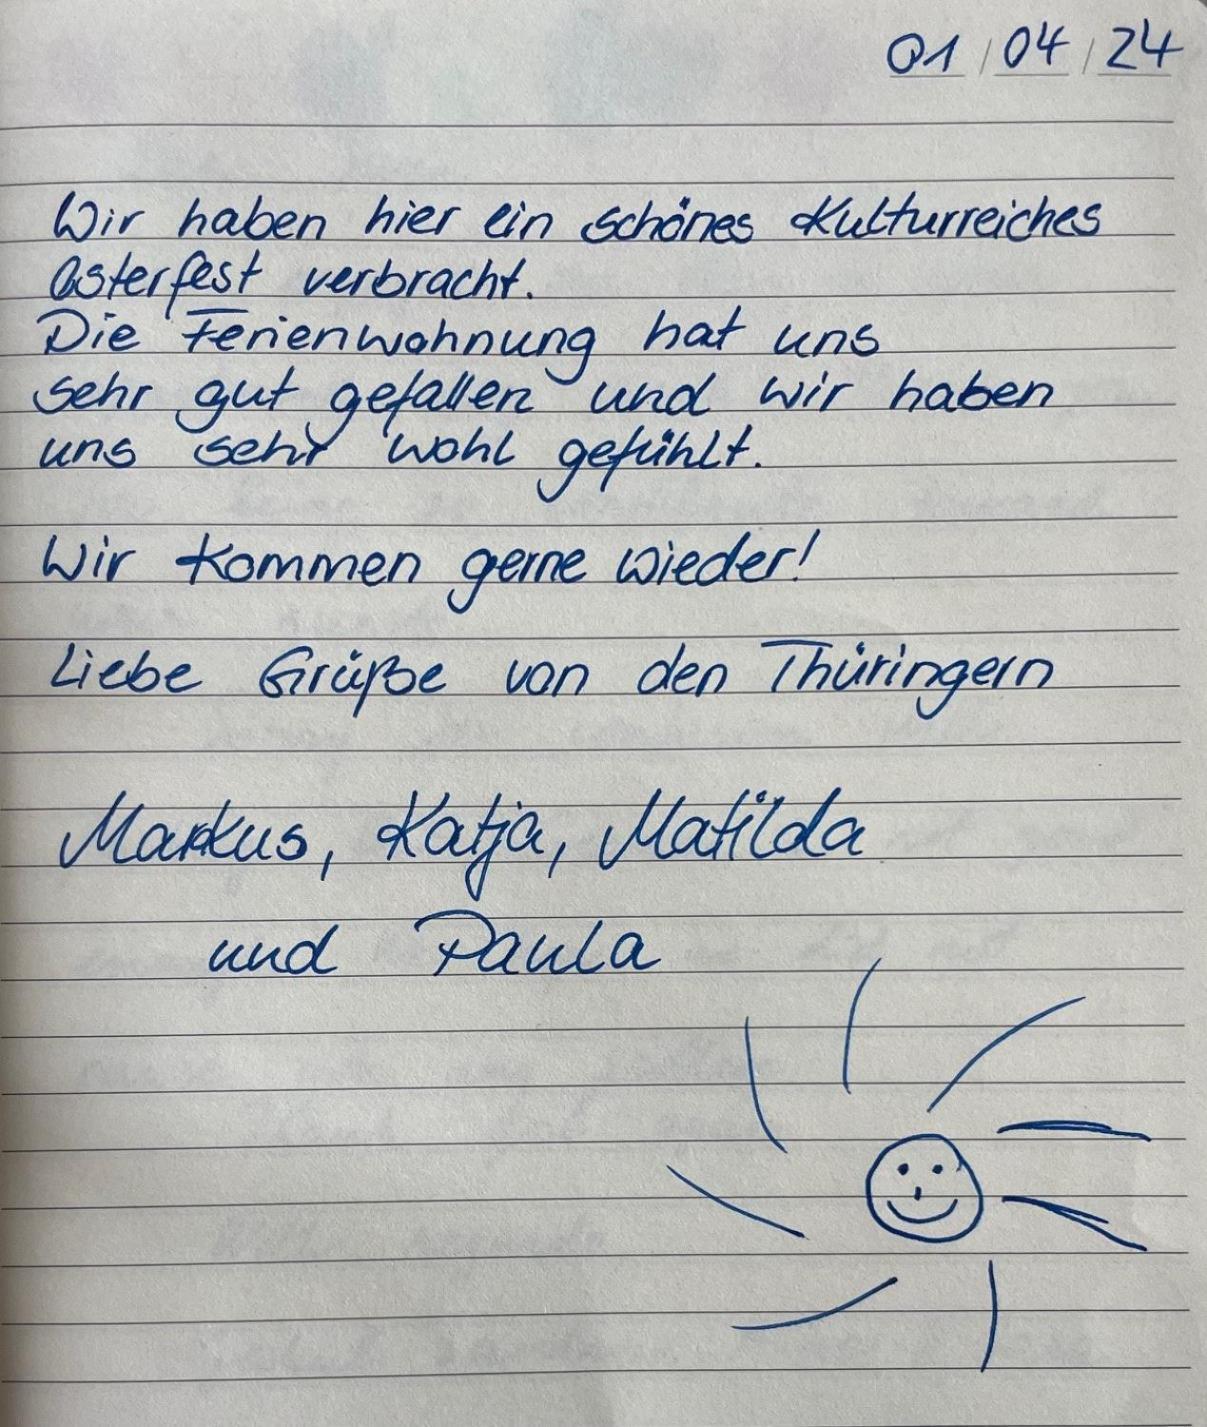 01/04/24
Wir haben hier ein schönes Kulturreiches
Osterfest verbracht.
Die Ferienwohnung hat uns
sehr gut gefallen und wir haben
uns sehr wohl gefühlt.
Wir kommen gerne wieder!
Liebe Grüße von den Thüringern
Markus, Katja, Matilda
und Paula